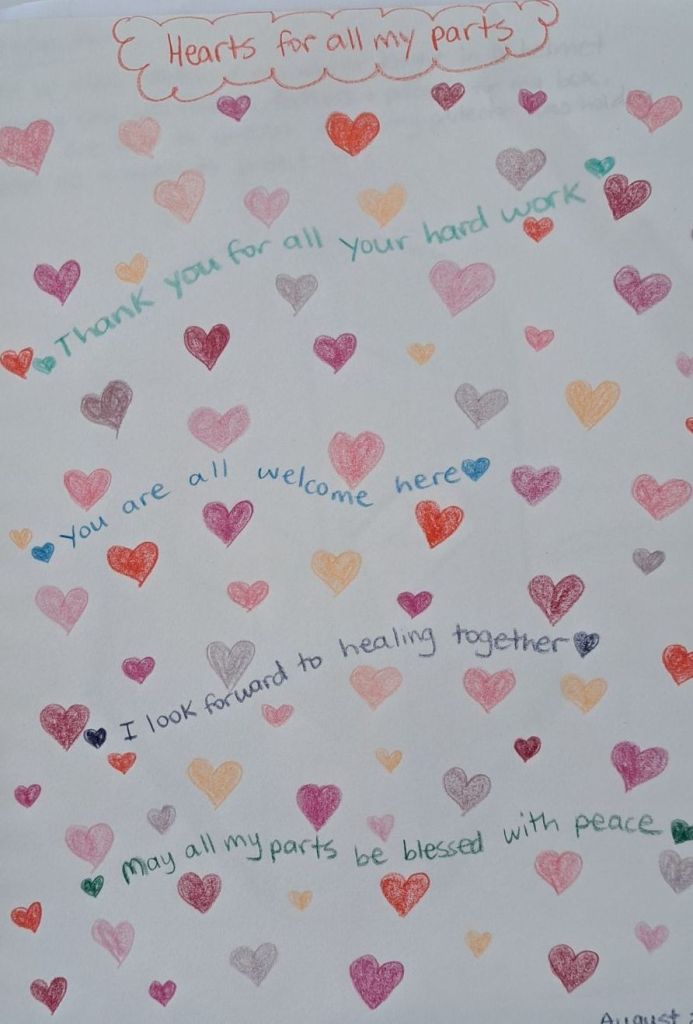 Hearts for all my parts
Thank you for all your hard work
You are all welcome here
I look forward to healing together
May all my parts be blessed with peace
August